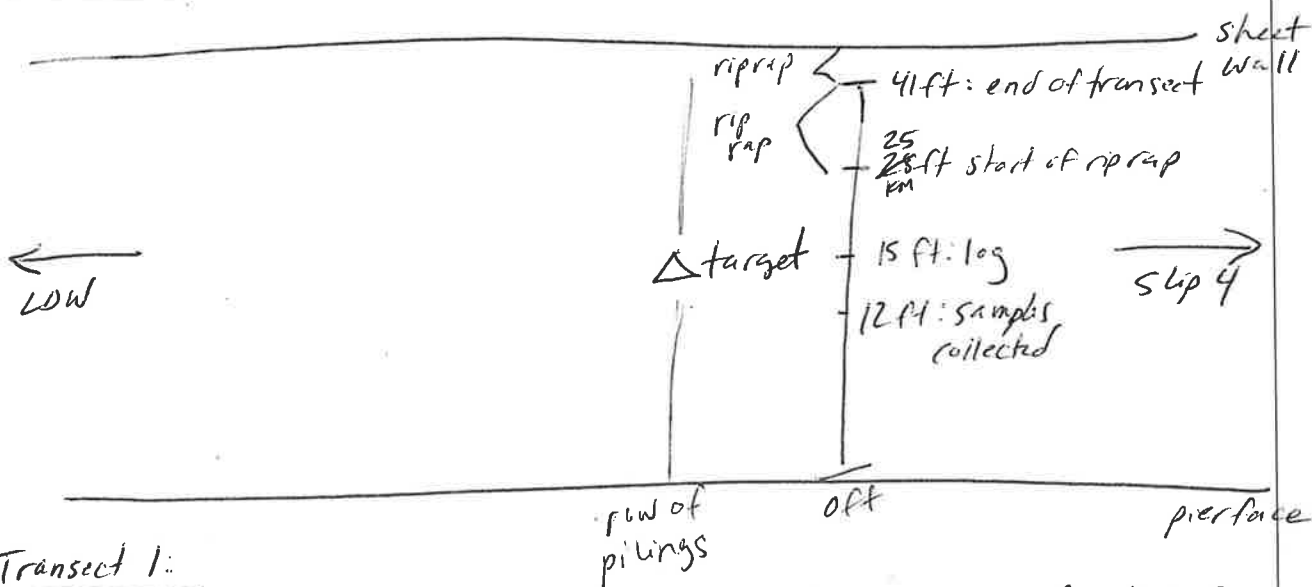 sheet
wall
riprap
41ft: end of transect
rip
rap
25
28ft start of riprap
KM
target
15 ft: log
LDW
Slip 4
12 ft: samples
collected
row of
pilings
0ft
pierface
Transect 1: